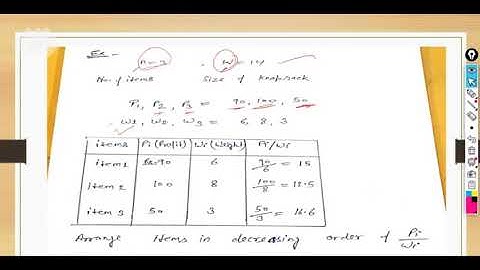 Ex:-
n=3 , W=14
No. of items Size of Knapsack
P1, P2, P3 = 90, 100, 50
W1, W2, W3 = 6, 8, 3
items Pi (Profit) Wi (Weight) Pi/Wi
item 1 90 6 90/6 = 15
item 2 100 8 100/8 = 12.5
item 3 50 3 50/3 = 16.6
Arrange items in decreasing order of Pi/Wi